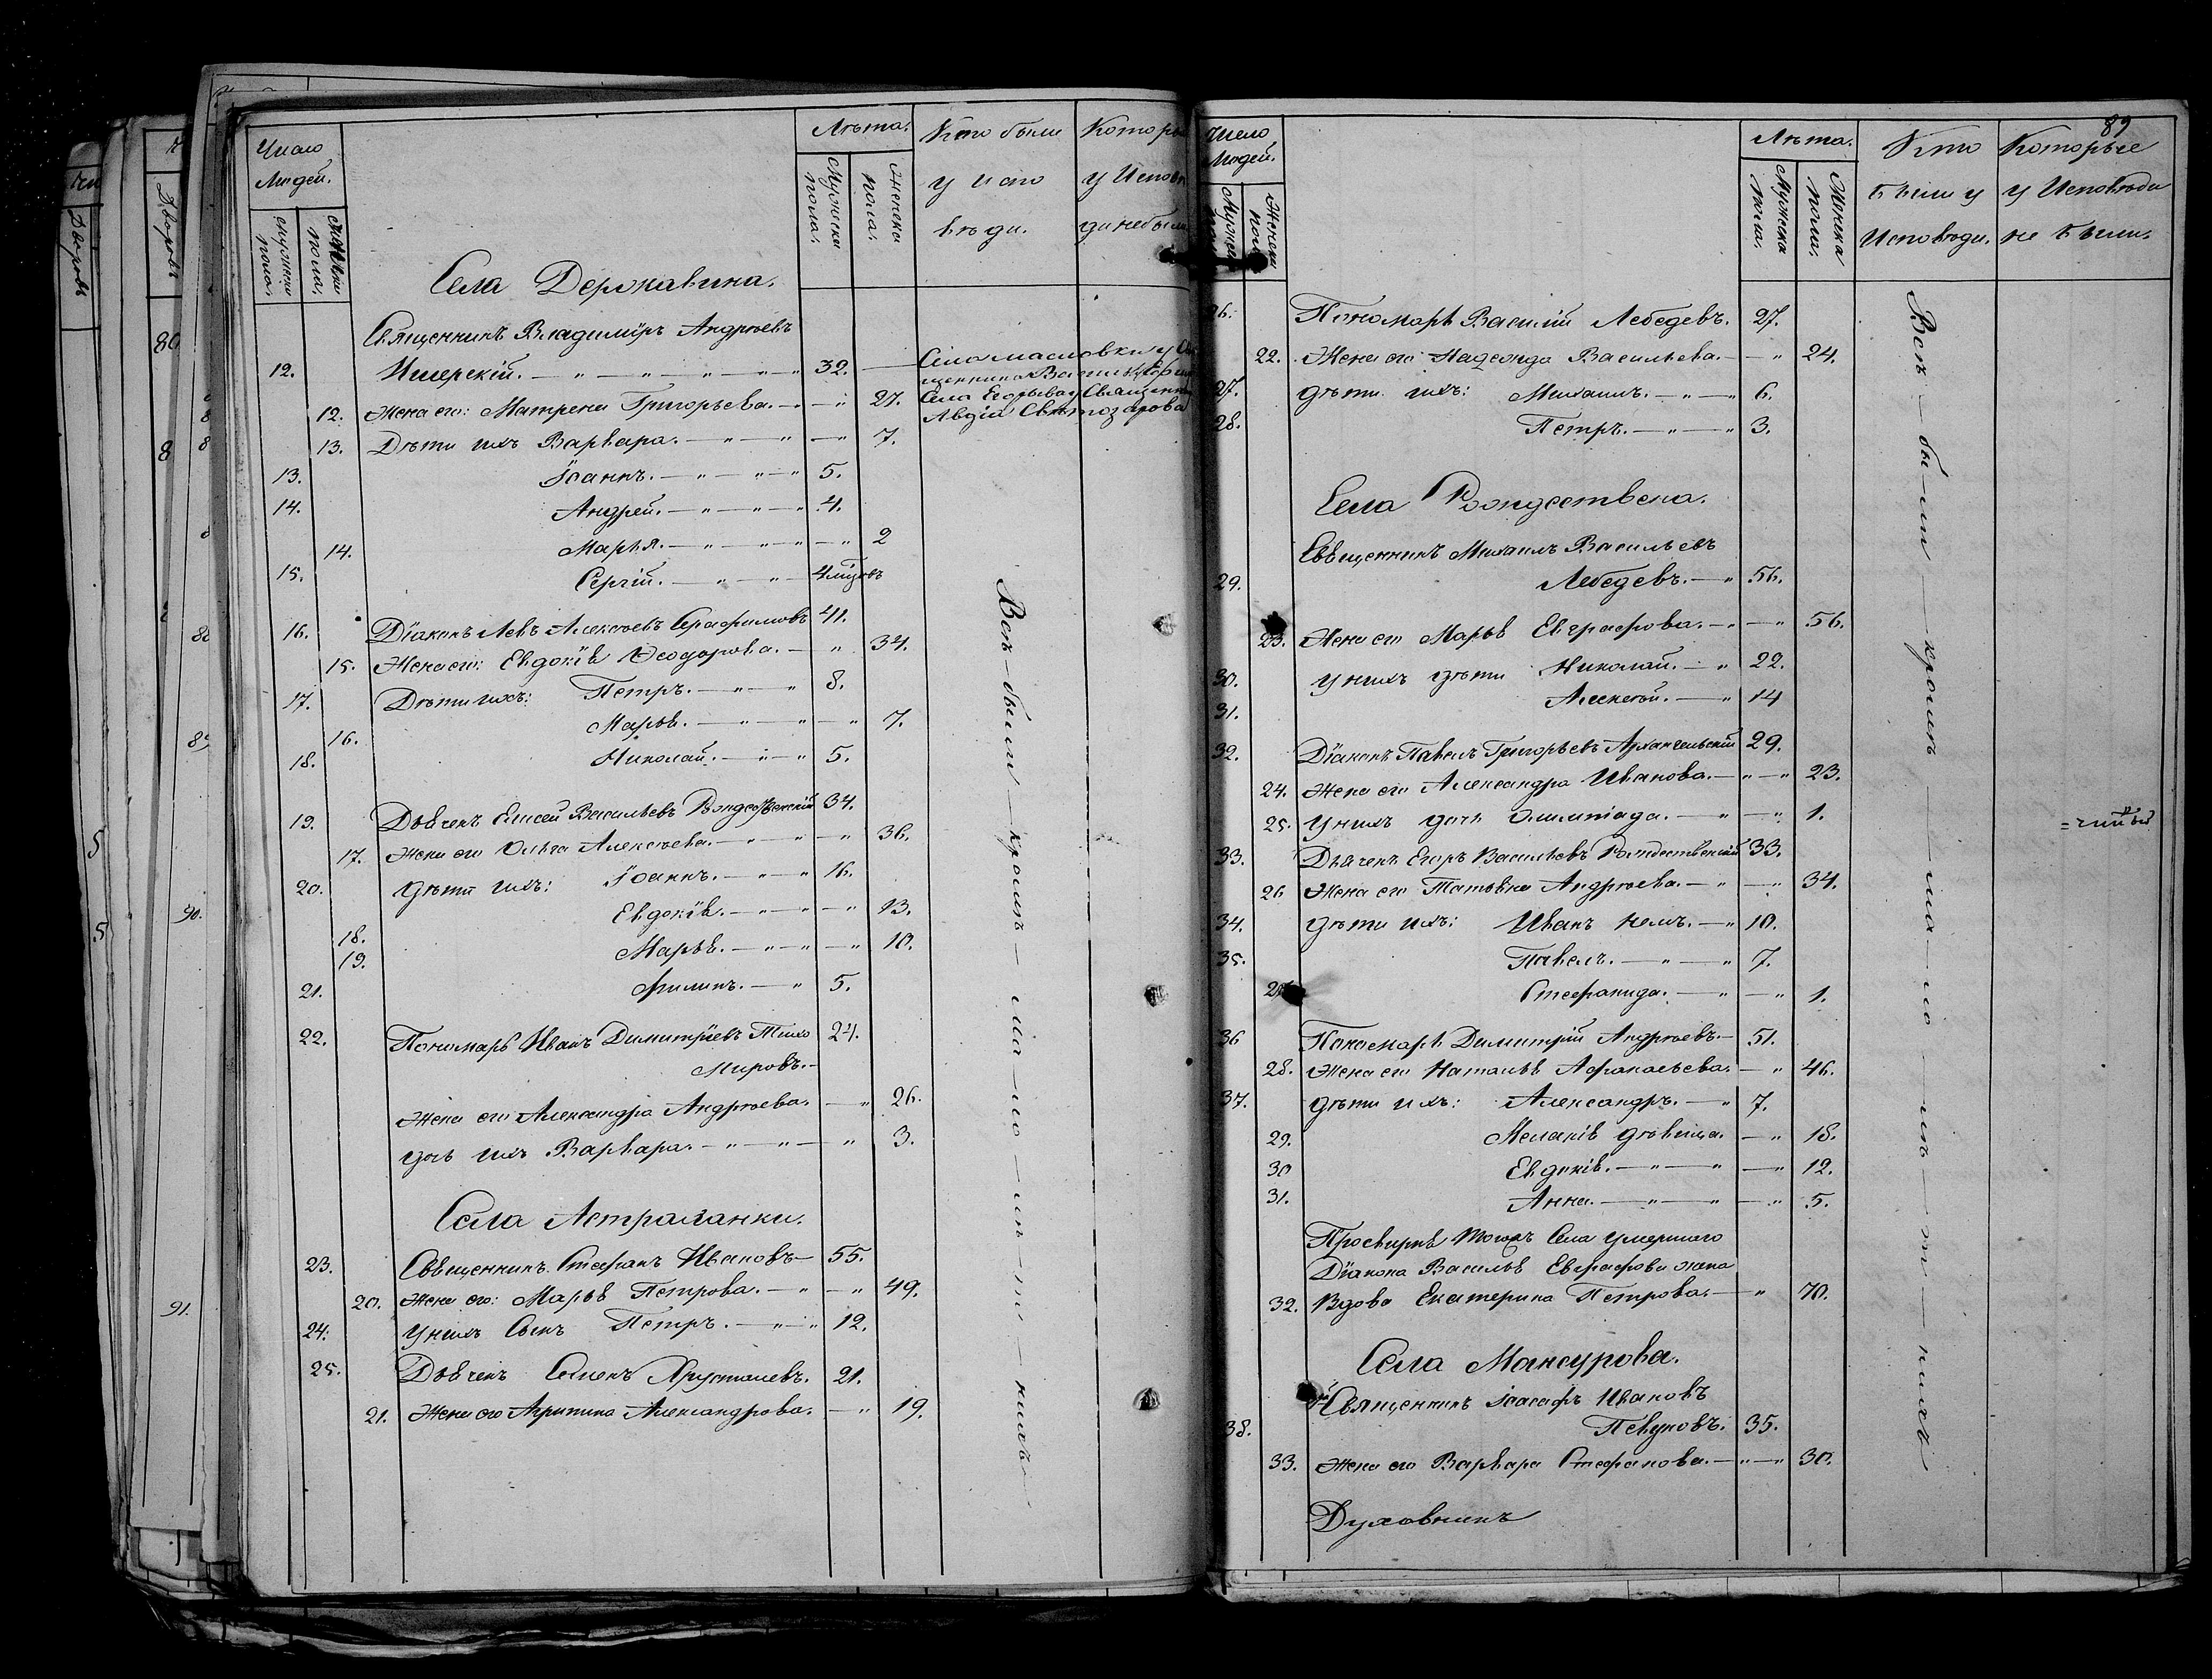 Число Людей.
мужеска пола.
пола.
Лѣта.
Мужеска пола.
Женска пола.
Кто были у испо вѣди.
у Испов
Села Державина.
Священникъ Владиміръ Андреевъ
12. Имерскій. 32.
12. Жена его: Матрена Григорьева. 27.
Села Масловки у
щенника
Села Егорьева Священни
Авдія Святозарова
13. Дѣти ихъ Варвара. 7.
13. Іоаннъ. 5.
14. Андрей. 4.
14. Марья. 2
15. Сергій. 4 мѣцовъ
16. Діаконъ Левъ Алексѣевъ Серафимовъ 41.
15. Жена его: Евдокія Ѳеодорова. 34.
17. Дѣти ихъ: Петръ. 8.
16. Марья. 7.
18. Николай. 5.
19. Дьячекъ Елисей Васильевъ Рождественскій 34.
17. Жена его Ольга Алексѣева. 36.
20. дѣти ихъ: Іоаннъ. 16.
18. Евдокія. 13.
19. Марья. 10.
21. Филипъ. 5.
22. Пономарь Иванъ Димитріевъ Тихо 24.
мировъ.
Жена его Александра Андреева. 26.
дочь ихъ Варвара. 3.
Села Астраханки.
23. Священникъ Стефанъ Ивановъ 55.
20. Жена его: Марья Петрова. 49.
24. У нихъ Сынъ Петръ. 12.
25. Дьячекъ Семенъ Хрусталевъ. 21.
21. Жена его Агрипина Александрова. 19.
89
Число Людей.
Женска пол
Лѣта.
Мужеска пола.
Женска пола.
Кто были у Исповѣди.
Которые у Исповѣди не были.
26. Пономарь Василій Лебедевъ. 27.
22. Жена его Надежда Васильева. 24.
27. дѣти ихъ: Михаилъ. 6.
28. Петръ. 3.
Села Рождествена.
Священникъ Михаилъ Васильевъ
29. Лебедевъ. 56.
23. Жена его Марья Евграфова. 56.
30. У нихъ дѣти Николай. 22.
31. Алексѣй. 14
32. Діаконъ Павелъ Григорьевъ Архангельскій 29.
24. Жена его Александра Иванова. 23.
25. У нихъ дочь Олимпіада. 1.
33. Дьячекъ Егоръ Васильевъ Рождественскій 33.
26 Жена его Татьяна Андреева. 34.
34. дѣти ихъ: Иванъ немъ. 10.
35. Павелъ. 7.
Стефанида. 1.
36 Пономарь Димитрій Андреевъ 51.
28. Жена его Наталья Афанасьева. 46.
37. дѣти ихъ: Александръ. 7.
29. Меланія дѣвица. 18.
30 Евдокія. 12.
31. Анна. 5.
Просвирня тогожъ Села умершаго
Діакона Василья Евграфова жена
32. Вдова Екатерина Петрова. 70.
Села Мансурова.
Священникъ Іоасафъ Ивановъ
38. Певуновъ. 35.
33. Жена его Варвара Стефанова. 30.
Духовникъ
Всѣ были кромѣ мало лѣт нихъ
Всѣ были кромѣ мало лѣт нихъ